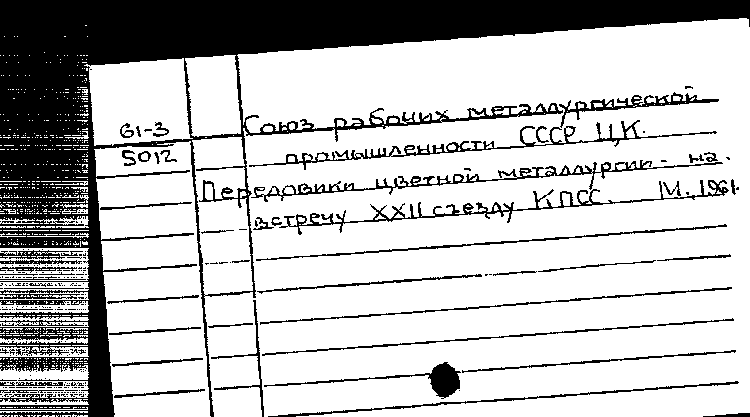 61-3 Союз рабочих металлургической
5012 промышленности СССР. Ц.К.
Передовики цветной металлургии - на
встречу XXII съезду КПСС. М., 1961.